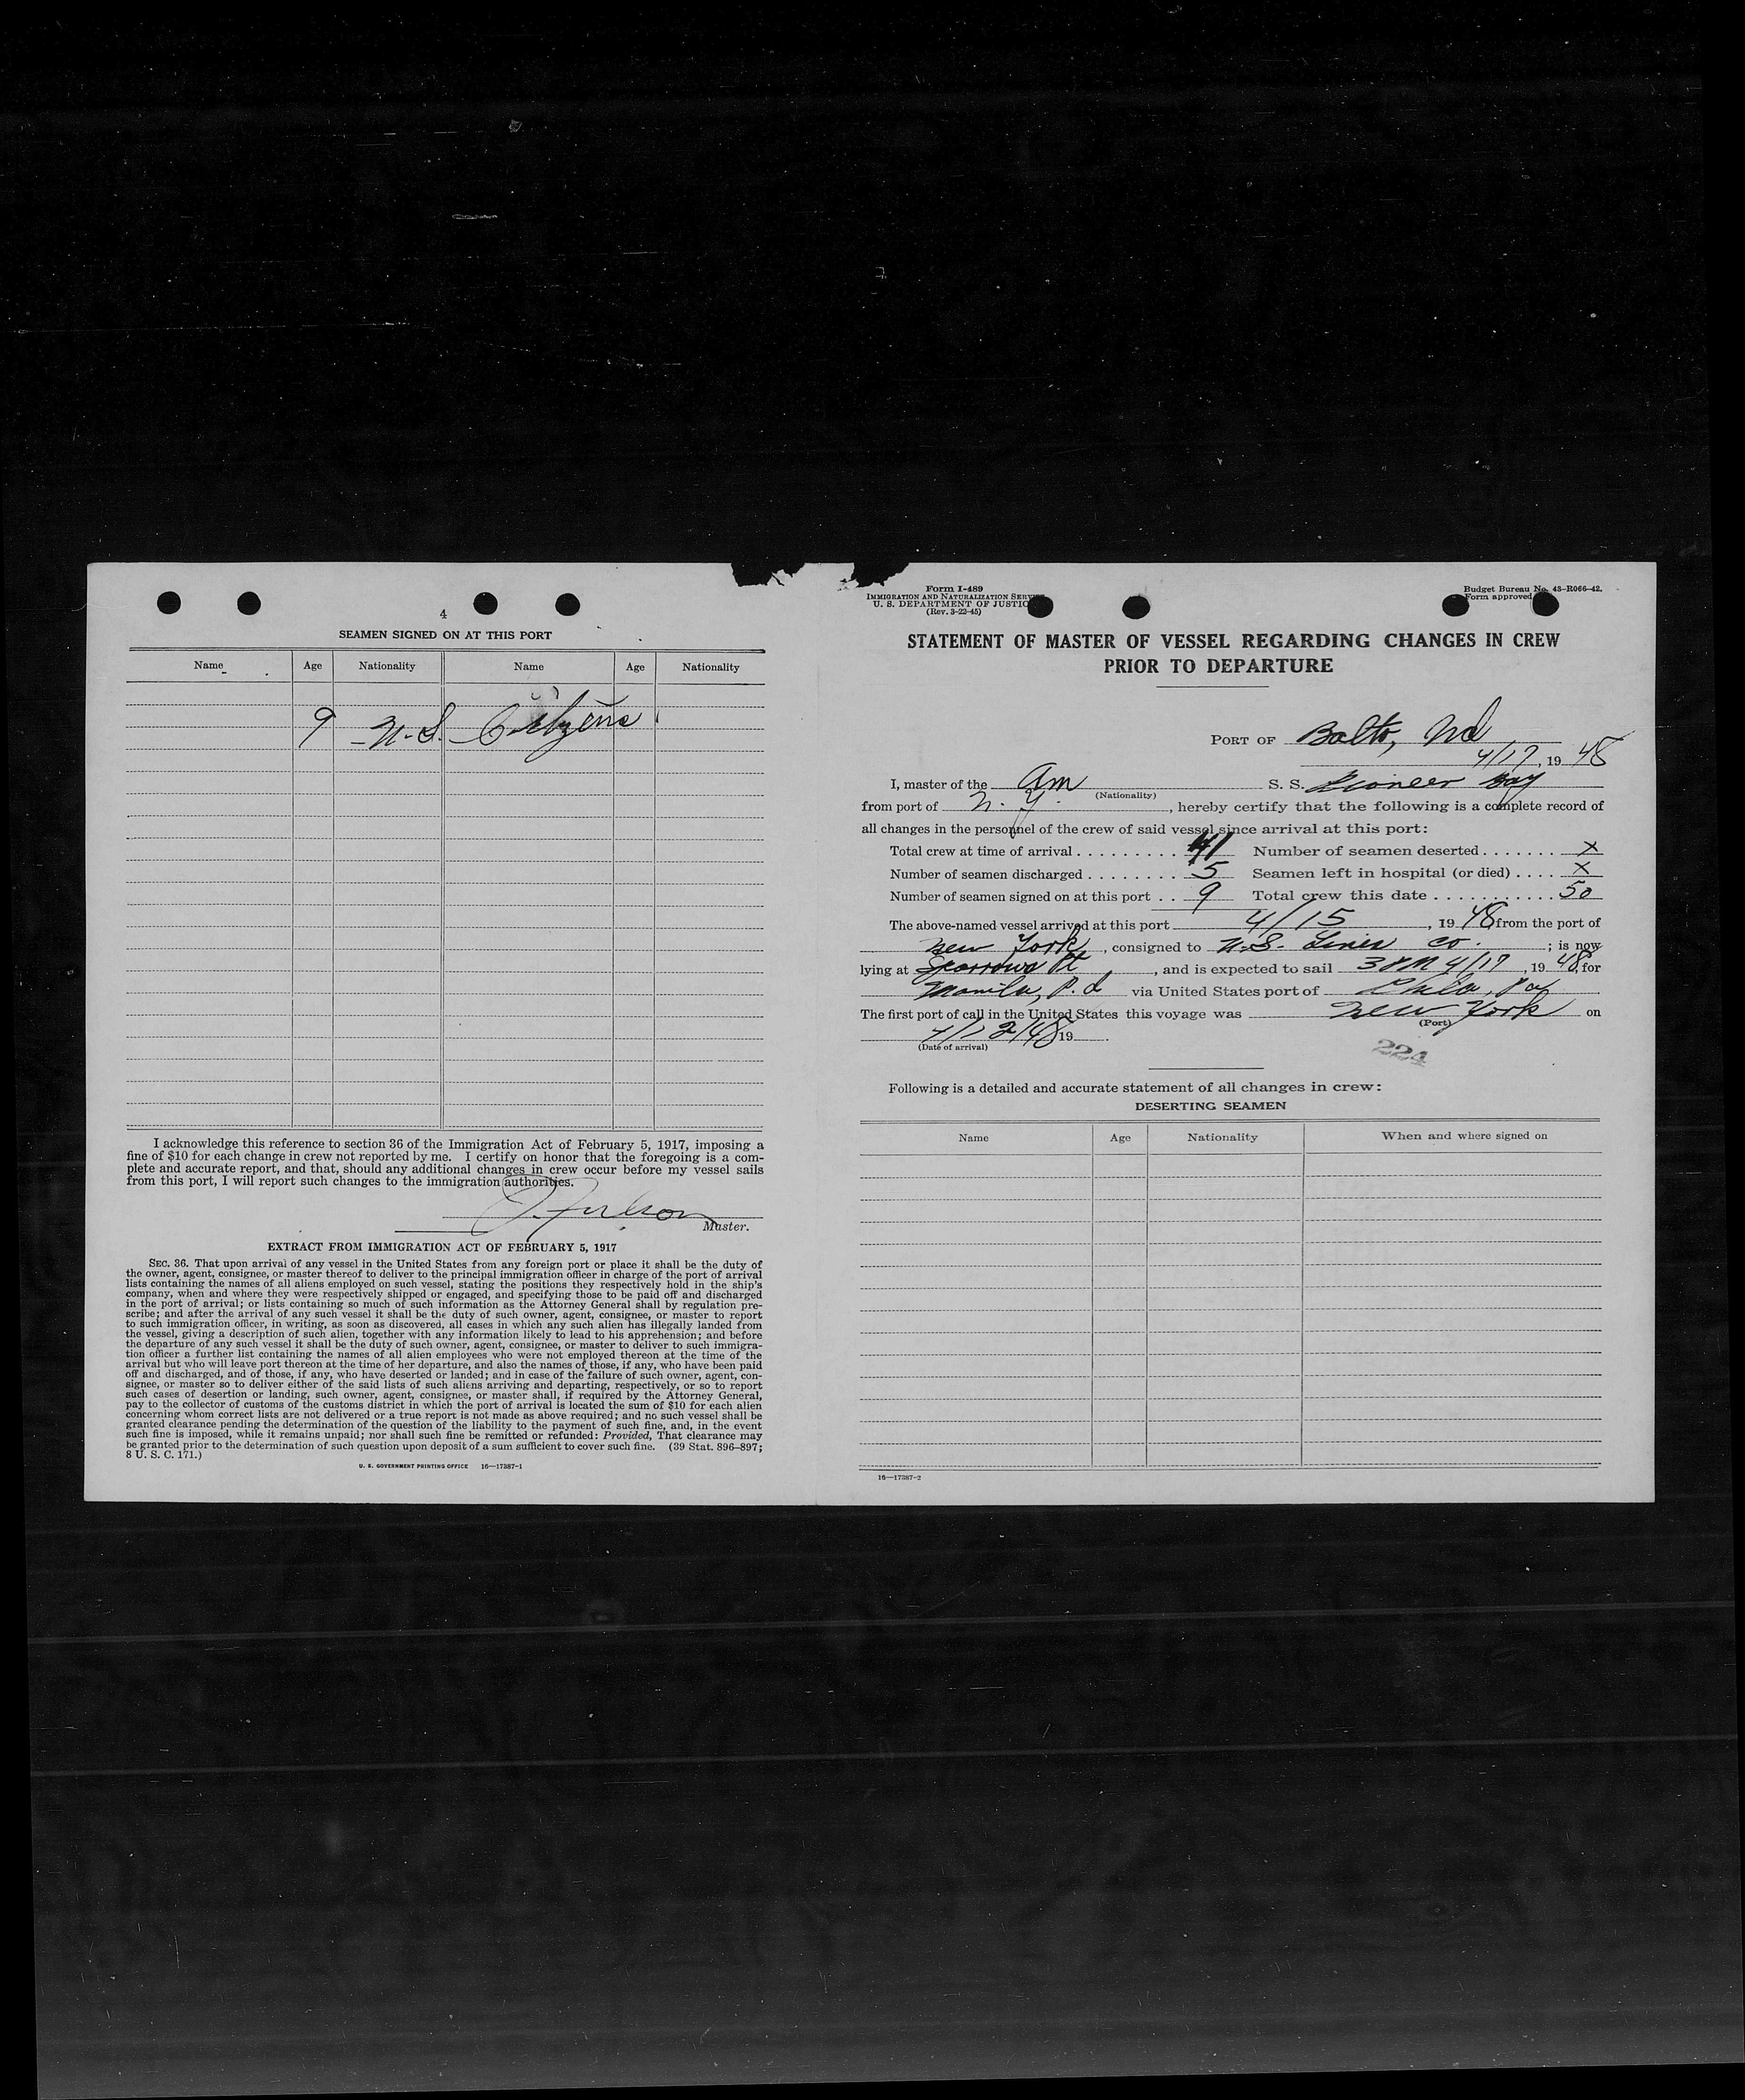 4
SEAMEN SIGNED ON AT THIS PORT
Name Age Nationality Name Age Nationality
9 U.S. Citizens
I acknowledge this reference to section 36 of the Immigration Act of February 5, 1917, imposing a
fine of $10 for each change in crew not reported by me. I certify on honor that the foregoing is a com-
plete and accurate report, and that, should any additional changes in crew occur before my vessel sails
from this port, I will report such changes to the immigration authorities.
Master.
EXTRACT FROM IMMIGRATION ACT OF FEBRUARY 5, 1917
SEC. 36. That upon arrival of any vessel in the United States from any foreign port or place it shall be the duty of
the owner, agent, consignee, or master thereof to deliver to the principal immigration officer in charge of the port of arrival
lists containing the names of all aliens employed on such vessel, stating the positions they respectively hold in the ship's
company, when and where they were respectively shipped or engaged, and specifying those to be paid off and discharged
in the port of arrival; or lists containing so much of such information as the Attorney General shall by regulation pre-
scribe; and after the arrival of any such vessel it shall be the duty of such owner, agent, consignee, or master to report
to such immigration officer, in writing, as soon as discovered, all cases in which any such alien has illegally landed from
the vessel, giving a description of such alien, together with any information likely to lead to his apprehension; and before
the departure of any such vessel it shall be the duty of such owner, agent, consignee, or master to deliver to such immigra-
tion officer a further list containing the names of all alien employees who were not employed thereon at the time of the
arrival but who will leave port thereon at the time of her departure, and also the names of those, if any, who have been paid
off and discharged, and of those, if any, who have deserted or landed; and in case of the failure of such owner, agent, con-
signee, or master so to deliver either of the said lists of such aliens arriving and departing, respectively, or so to report
such cases of desertion or landing, such owner, agent, consignee, or master shall, if required by the Attorney General,
pay to the collector of customs of the customs district in which the port of arrival is located the sum of $10 for each alien
concerning whom correct lists are not delivered or a true report is not made as above required; and no such vessel shall be
granted clearance pending the determination of the question of the liability to the payment of such fine, and, in the event
such fine is imposed, while it remains unpaid; nor shall such fine be remitted or refunded: Provided, That clearance may
be granted prior to the determination of such question upon deposit of a sum sufficient to cover such fine. (39 Stat. 896–897;
8 U. S. C. 171.)
U. S. GOVERNMENT PRINTING OFFICE 16—17387-1
Form I-489
IMMIGRATION AND NATURALIZATION SERV
U. S. DEPARTMENT OF JUSTIC
(Rev. 3-22-45)
Budget Bureau No. 43-R066-42.
Form approved
STATEMENT OF MASTER OF VESSEL REGARDING CHANGES IN CREW
PRIOR TO DEPARTURE
PORT OF Balto, Md
4/17, 19 48
I, master of the Am S. S. Pioneer Bay
(Nationality)
from port of N. Y., hereby certify that the following is a complete record of
all changes in the personnel of the crew of said vessel since arrival at this port:
Total crew at time of arrival . . . . . . . . . 41 Number of seamen deserted . . . . . . . X
Number of seamen discharged . . . . . . . . 5 Seamen left in hospital (or died) . . . . X
Number of seamen signed on at this port . . 9 Total crew this date . . . . . . . . . . . 50
The above-named vessel arrived at this port 4/15, 19 48 from the port of
New York, consigned to U.S. Lines Co.; is now
lying at Sparrows Pt, and is expected to sail 3 PM 4/17, 19 48, for
Manila, P. I. via United States port of Phila, Pa
The first port of call in the United States this voyage was New York on
(Port)
4/12/48 19 .
(Date of arrival)
224
Following is a detailed and accurate statement of all changes in crew:
DESERTING SEAMEN
Name Age Nationality When and where signed on
16—17387-2